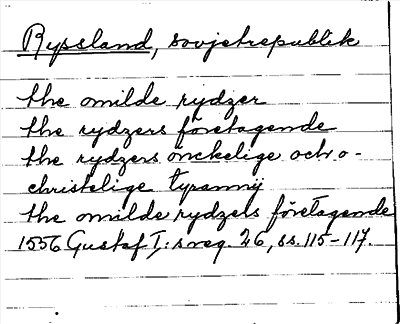 Ryssland, sovjetrepublik
the omilde rydzer
the rydzers företagende
the rydzers önckelige och o-
christelige tyrannij
the omilde rydzels företagende
1556 Gustaf I: s reg. 26, ss. 115-117.